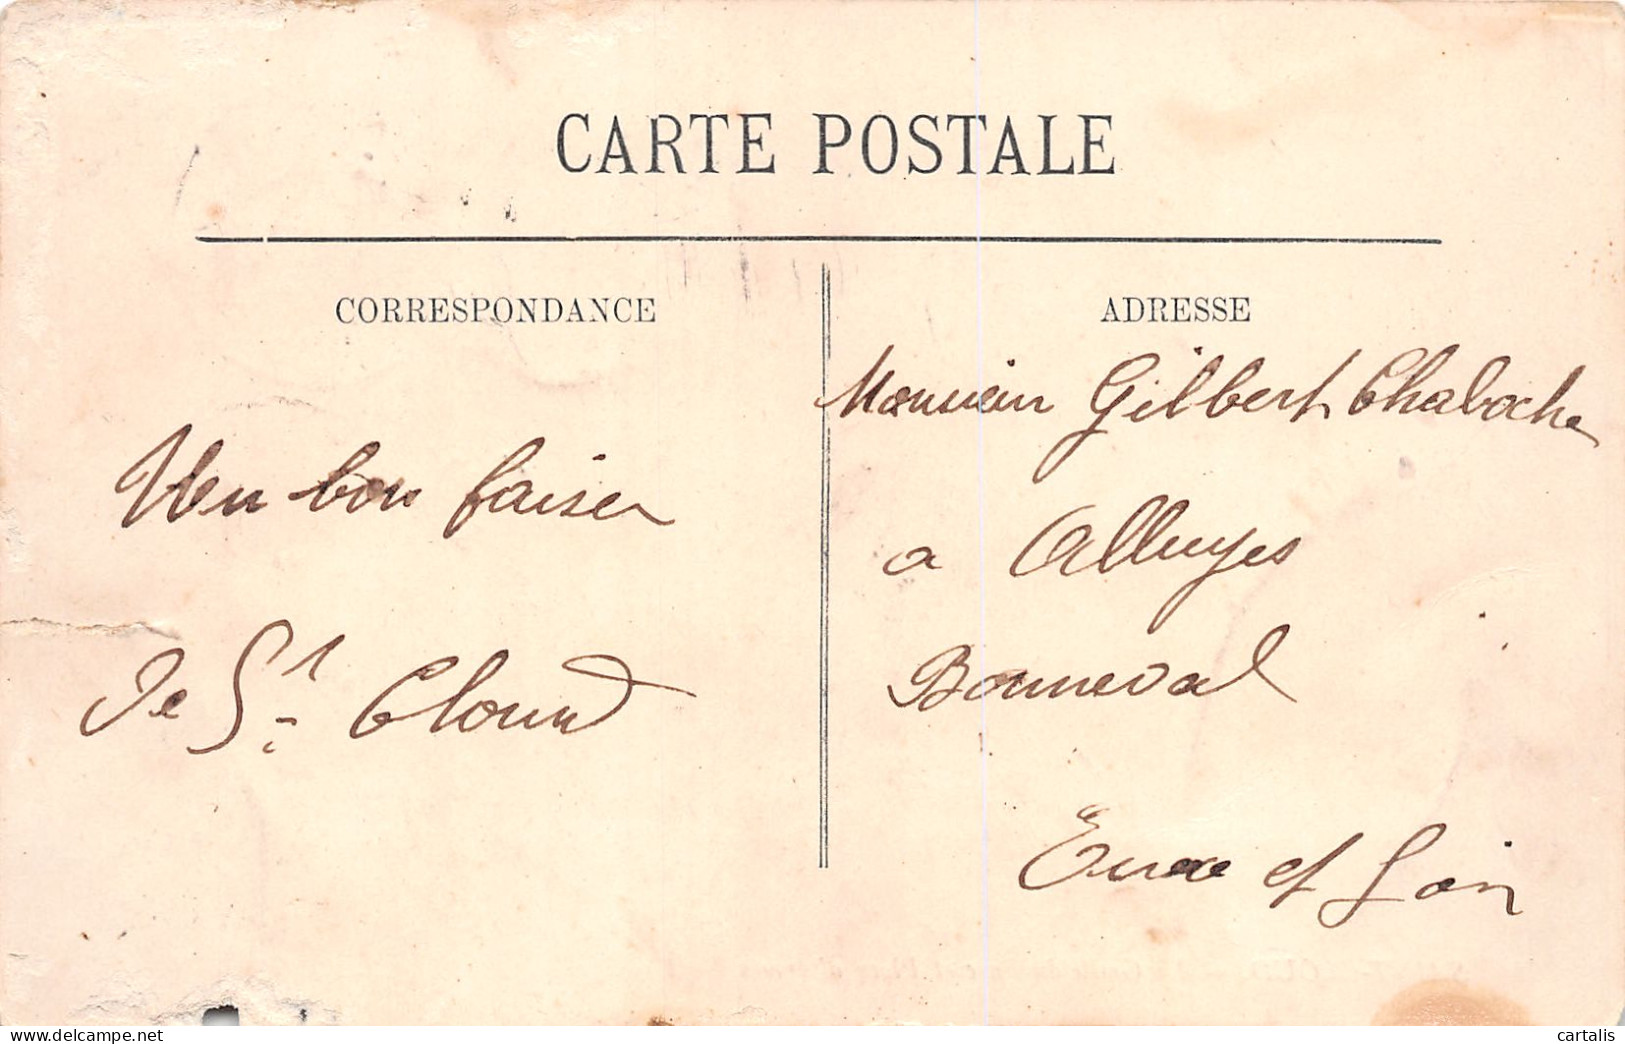 CARTE POSTALE
CORRESPONDANCE
ADRESSE
Un bon baiser
de St Cloud
Monsieur Gilbert Chaboche
a Alluyes
Bonneval
Eure et Loir
cartalis